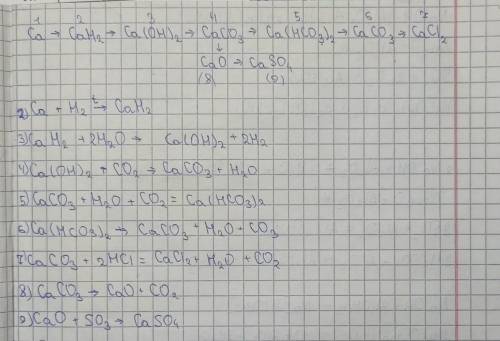 1 2 3 4 5 6 7
Ca → CaH2 → Ca(OH)2 → CaCO3 → Ca(HCO3)2 → CaCO3 → CaCl2
↓
CaO → CaSO4
(8) (9)
2) Ca + H2 t→ CaH2
3) CaH2 + 2H2O → Ca(OH)2 + 2H2
4) Ca(OH)2 + CO2 → CaCO3 + H2O
5) CaCO3 + H2O + CO2 = Ca(HCO3)2
6) Ca(HCO3)2 → CaCO3 + H2O + CO3
7) CaCO3 + 2HCl = CaCl2 + H2O + CO2
8) CaCO3 → CaO + CO2
9) CaO + SO3 → CaSO4